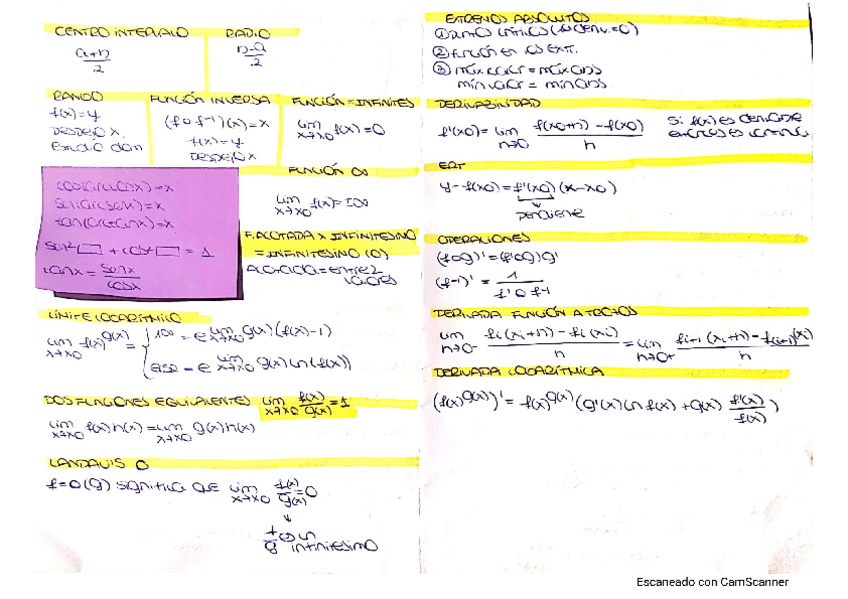 CENTRO INTERVALO
a+b
2
RADIO
b-a
2
RANGO
f(x)=y
DESPEJO X.
Estudio dom
FUNCIÓN INVERSA
(f o f⁻¹)(x)=x
f(x)=y
DESPEJO X
FUNCIÓN=INFINITES
lim f(x)=0
x→x0
FUNCIÓN ∞
lim f(x)=±∞
x→x0
cos(arccosx)=x
sen(arcsenx)=x
tan(arctanx)=x
sen²□ + cos²□ = 1
tanx = senx
cosx
F.ACOTADA x INFINITESIMO
= INFINITESIMO (0)
ACOTADA=entre 2
valores
LÍMITE LOGARÍTMICO
lim f(x)^g(x) = { 1∞ = e lim g(x)(f(x)-1)
x→x0
e lim g(x) ln(f(x))
x→x0
DOS FUNCIONES EQUIVALENTES lim f(x)/g(x) = 1
x→x0
lim f(x)h(x)=lim g(x)h(x)
x→x0 x→x0
LANDAU'S O
f=o(g) significa que lim f(x)/g(x)=0
x→x0
↓
f/g es un
infinitesimo
EXTREMOS ABSOLUTOS
① puntos críticos (su deriv.=0)
② función en los ext.
③ máx valor = máx abs
min valor = min abs.
DERIVABILIDAD
f'(x0)= lim f(x0+h)-f(x0)
h→0 h
Si f(x) es derivable
entonces es
ERT
y-f(x0)=f'(x0)(x-x0)
↓
pendiente
OPERACIONES
(fog)'=(f'og)g'
(f⁻¹)'= 1
f' o f⁻¹
DERIVADA FUNCIÓN A TROZOS
lim fi(xi+h)-fi(xi) = lim fi+1(xi+h)-f(i+1)(xi)
h→0⁻ h h→0⁺ h
DERIVADA LOGARÍTMICA
(f(x)^g(x))'= f(x)^g(x)(g'(x)ln f(x)+g(x) f'(x)/f(x))
Escaneado con CamScanner